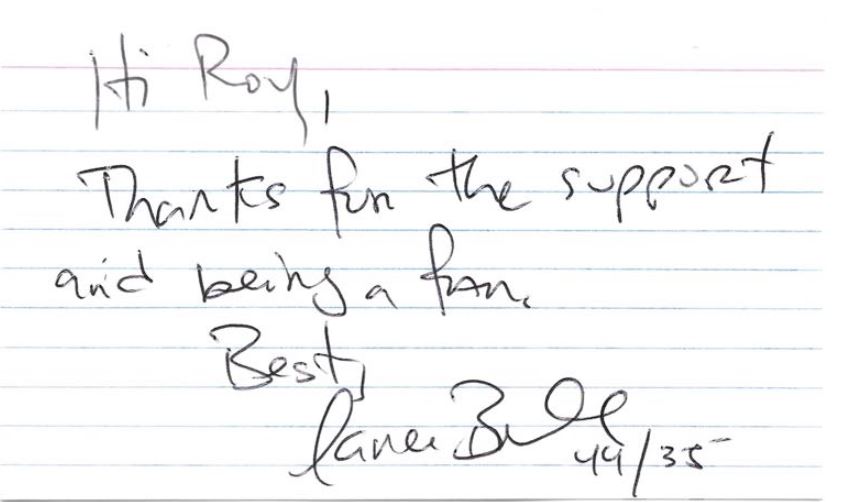 Hi Roy,
Thanks for the support
and being a fan.
Best,
44/35